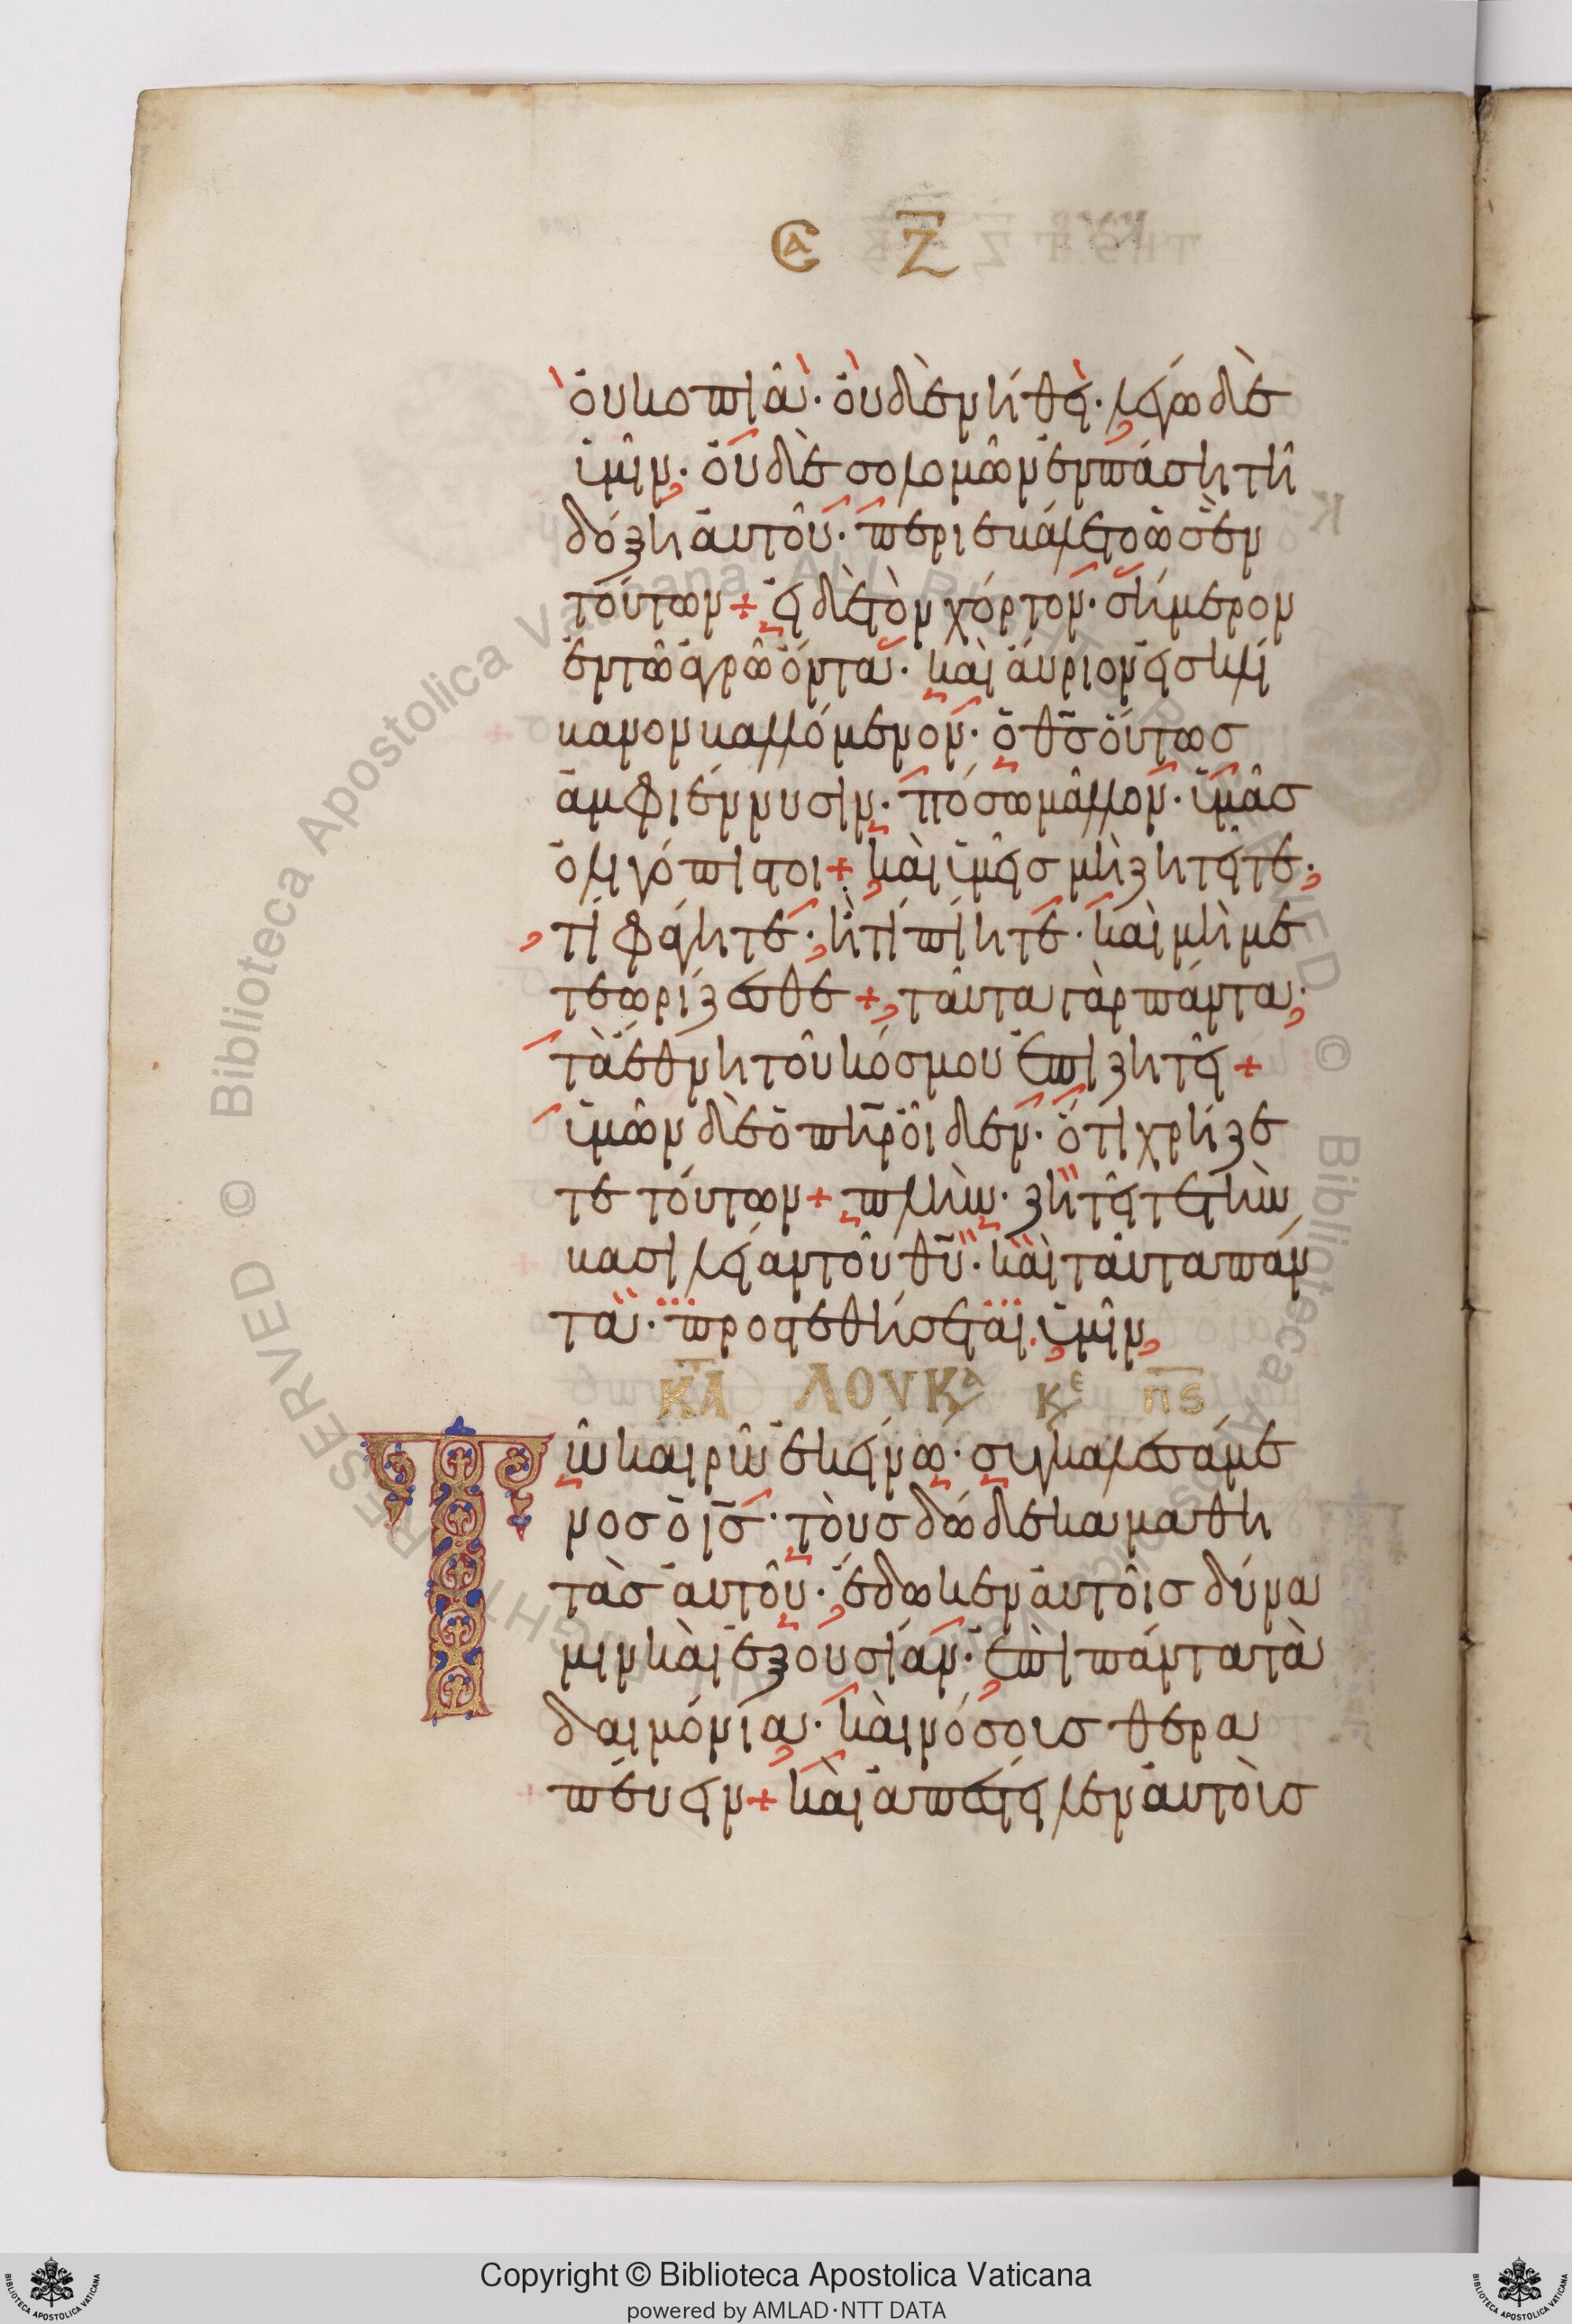 ϹΑ Ζ
ὀυ κοπιᾶ· ὀυδὲ νήθει· λέγω δὲ
ὑμῖν· ὀυδὲ σολομῶν ἐν πάσῃ τῆ
δόξη ἀυτοῦ· περιεκάλετο ὡσ ἓν
τούτων + εἰ δὲ τὸν χόρτον· σήμερον
ἐν τῶ ἀγρῶ ὄντα· καὶ ἄυριον εἰσ κλί
βανον βαλλόμενον· ὁ θ̅σ̅ ὅυτωσ
ἀμφιέννυσιν· πόσω μᾶλλον· ὑμᾶσ
ὀλιγόπιστοι + καὶ ὑμεῖσ μὴ ζητεῖτε·
τί φάγητε· ἢ τί πίητε· καὶ μὴ με
τεωρίζεσθε + ταῦτα γὰρ πάντα·
τὰ ἔθνη τοῦ κόσμου ἐπιζητεῖ +
ὑμῶν δὲ ὁ π̅η̅ρ̅ ὄιδεν· ὅτι χρήζε
τε τούτων + πλὴν· ζητεῖτε τὴν
βασιλείαν τοῦ θ̅υ̅· καὶ ταῦτα πάν
τα· προστεθήσεται ὑμῖν
Κ̅Α̅ ΛΟΥΚᾹ Κ̅Ε̅ Π̅Ϛ̅
Τῶ καιρῶ ἐκείνω· συγκαλεσάμε
νοσ ὁ ι̅σ̅· τοὺσ δώδεκα μαθη
τὰσ ἀυτοῦ· ἔδωκεν ἀυτοῖσ δύνα
μιν καὶ ἐξουσίαν· ἐπὶ πάντα τὰ
δαιμόνια· καὶ νόσοισ θερα
πέυειν + καὶ ἀπέστειλεν ἀυτοὺσ